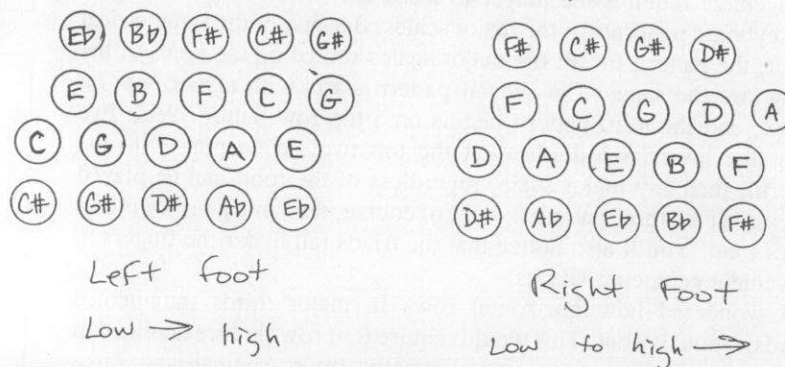 Eb Bb F# C# G#
E B F C G
C G D A E
C# G# D# Ab Eb
Left foot
Low → high
F# C# G# D#
F C G D A
D A E B F
D# Ab Eb Bb F#
Right Foot
Low to high →